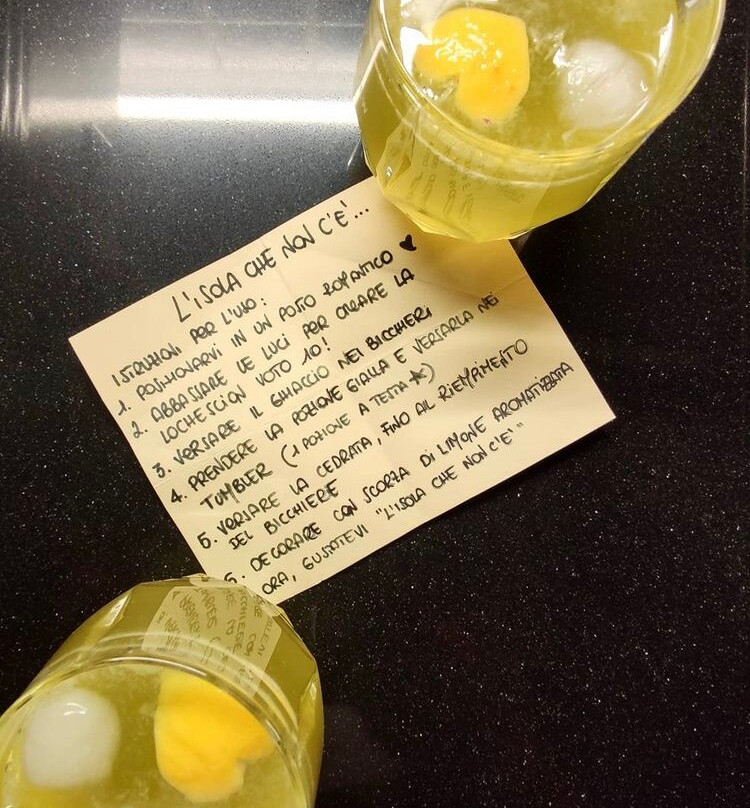 L'ISOLA CHE NON C'E'...
ISTRUZIONI PER L'USO:
1. POSIZIONARVI IN UN POSTO ROMANTICO ♥
2. ABBASSARE LE LUCI PER CREARE LA
LOCHESCION VOTO 10!
3. VERSARE IL GHIACCIO NEI BICCHIERI
4. PRENDERE LA POZIONE GIALLA E VERSARLA NEI
TUMBLER (1 POZIONE A TESTA)
5. VERSARE LA CEDRATA, FINO AL RIEMPIMENTO
DEL BICCHIERE
6. DECORARE CON SCORZA DI LIMONE AROMATIZZATA
ORA, GUSTATEVI "L'ISOLA CHE NON C'E'"